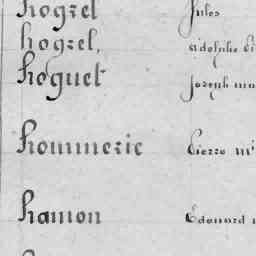 Hogrel Jules
hogrel, adolphe
Hoguet Joseph
Hommerie Pierre
Hamon Edouard